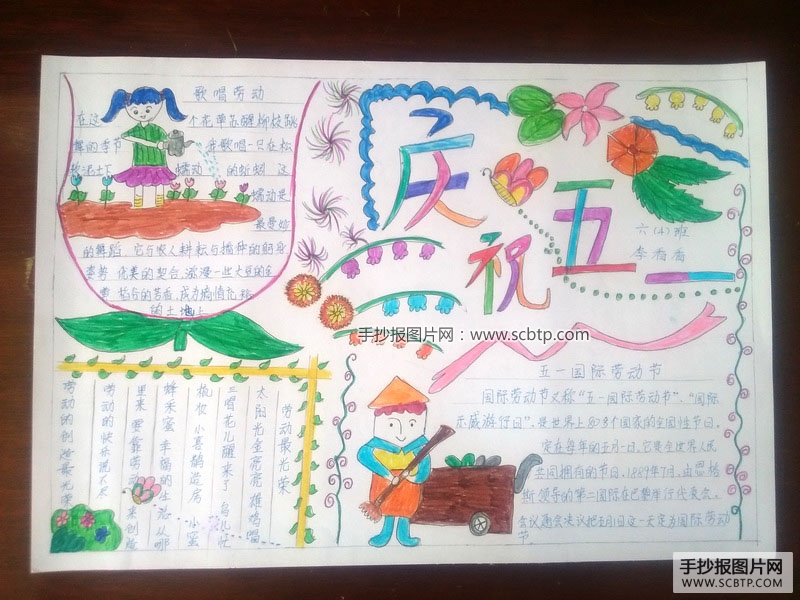 歌唱劳动
在这 个花草苏醒柳枝跳
舞的季节 我歌唱一只在松
软泥土下 蠕动 的蚯蚓 这
蠕动是
最曼妙
的舞蹈 它与农人耕耘与播种的躬身
的土地上
庆祝五一
六(4)班
李香香
手抄报图片网：www.scbtp.com
五一国际劳动节
国际劳动节又称“五一国际劳动节”、“国际
示威游行日”，是世界上80多个国家的全国性节日。
定在每年的五月一日。它是全世界人民
共同拥有的节日。1889年7月，由恩格
斯领导的第二国际在巴黎举行代表会。
会议通过决议把五月一日这一天定为国际劳动
节。
劳动最光荣
太阳光金亮亮 雄鸡唱
三唱 花儿醒来了 鸟儿忙
梳妆 小喜鹊 造房 小蜜
蜂采蜜 幸福的生活从哪
里来 要靠劳 来创造
劳动的快乐说不尽
劳动的创造最光荣
手抄报图片网
WWW.SCBTP.COM